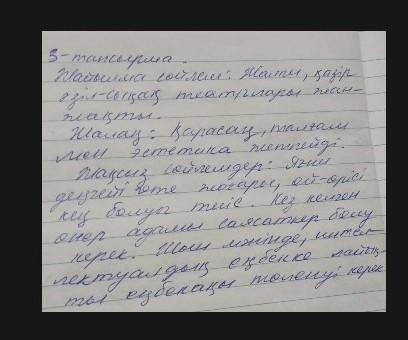 3-тапсырма.
Жайылма сөйлем: Жалпы, қазір
әзіл-сықақ театрлары жан-
жақты.
Жалаң: Қарасаң, талғам
мен эстетика жетпейді.
Жақсыз сөйлемдер: Яғни
деңгейі өте жоғары, ой-өрісі
кең болуы тиіс. Кез келген
өнер адамы саясаткер болу
керек. Шын мәнінде, интел-
лектуалдың еңбекке лайық-
ты еңбекақы төленуі керек